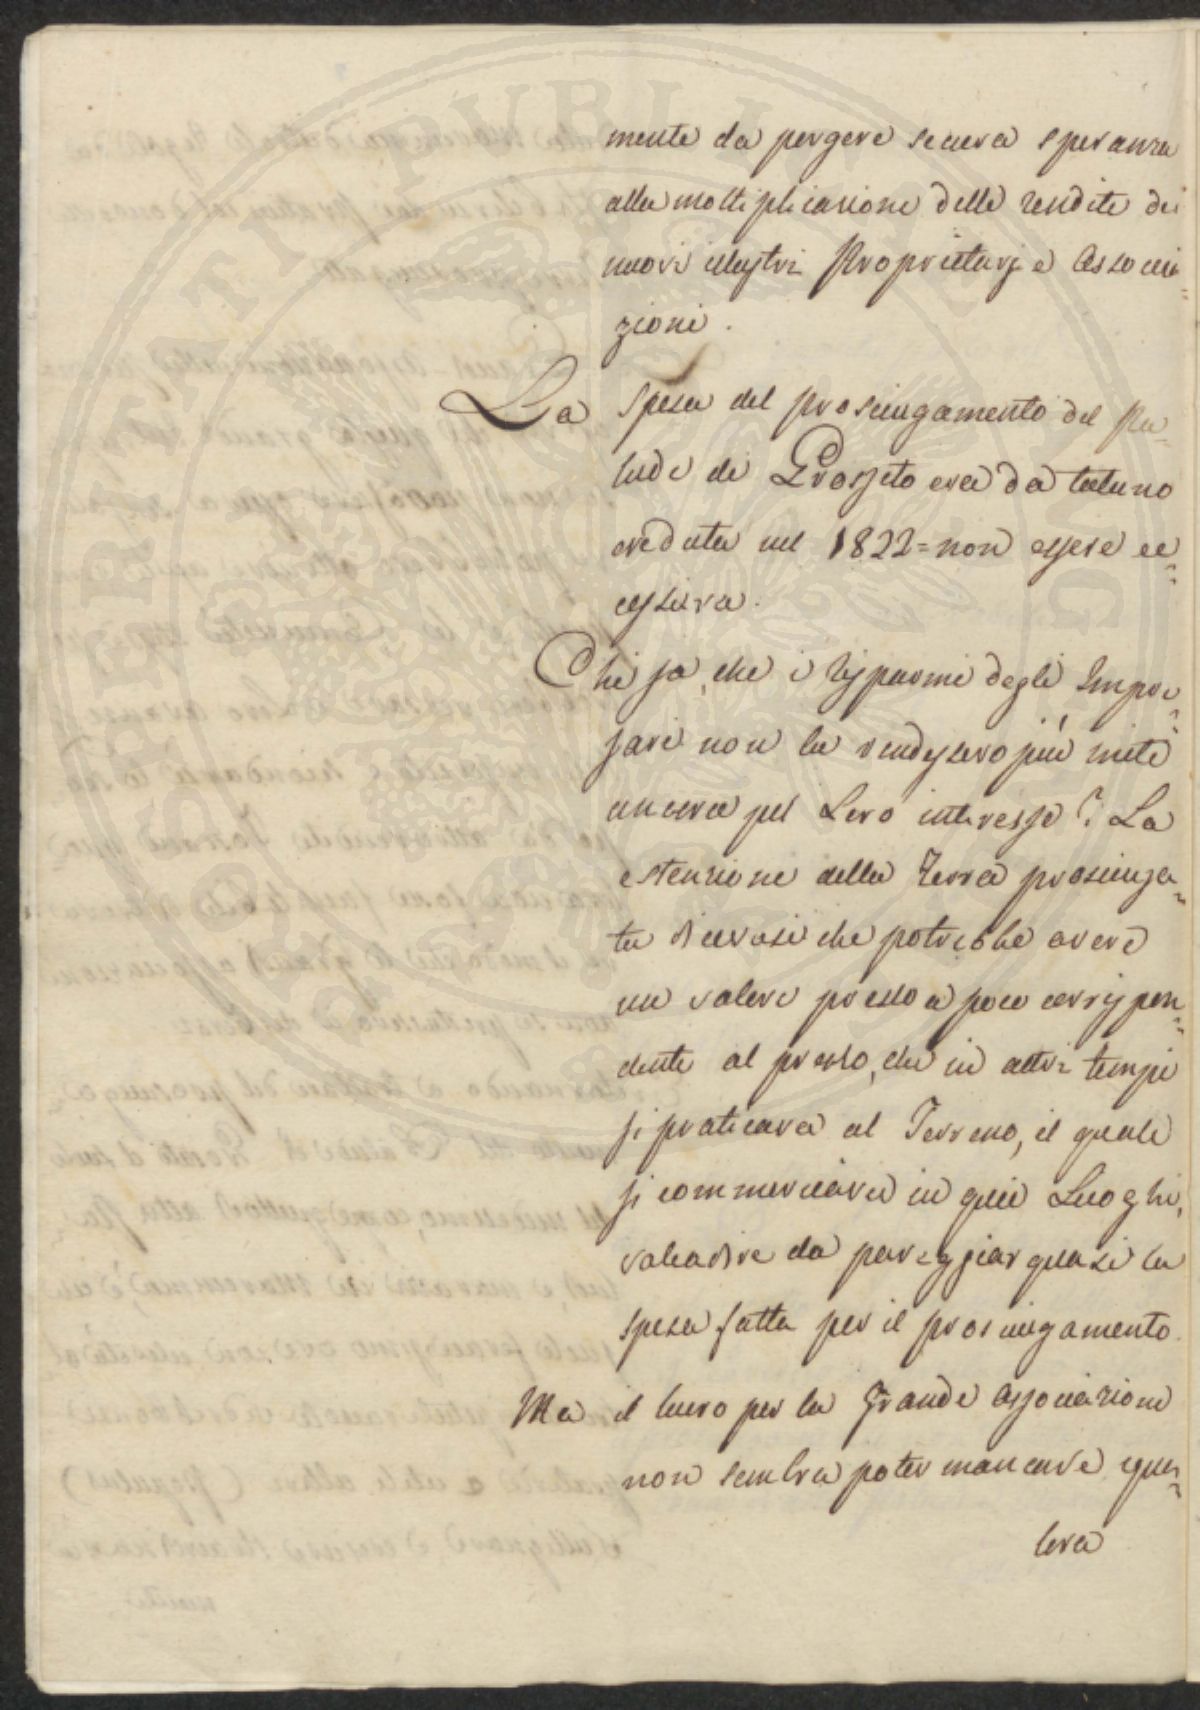 mente da porgere sicura speranza
alla moltiplicazione delle rendite dei
nuovi illustri Proprietarj e Associa=
zioni.
La spesa del prosciugamento del Pa=
lude di Grosseto era da taluno
creduta nel 1822= non essere ec=
cessiva.
Chi sa, che i risparmi degli Impre=
sari non la rendessero più mite
ancora pel Loro interesse? La
estenzione della Terra prosciuga=
ta dicevasi che potrebbe avere
un valore presso a poco corrispon=
dente al prezzo, che in altri tempi
si praticava al Terreno, il quale
si commerciava in quei Luoghi,
valeadire da pareggiar quasi la
spesa fatta per il prosciugamento.
Ma il lucro per la Grande Associazione
non sembra poter mancare, qua=
lora